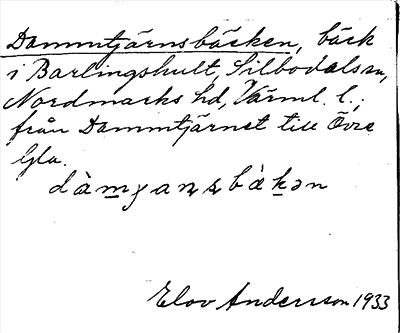 Dammtjärnsbäcken, bäck
i Barlingshult, Silbodals sn,
Nordmarks hd, Värml. l.;
från Dammtjärnet till Övre
Gla.
dàm̲ɟanʂbæ̀k̲ən
Elov Andersson 1933